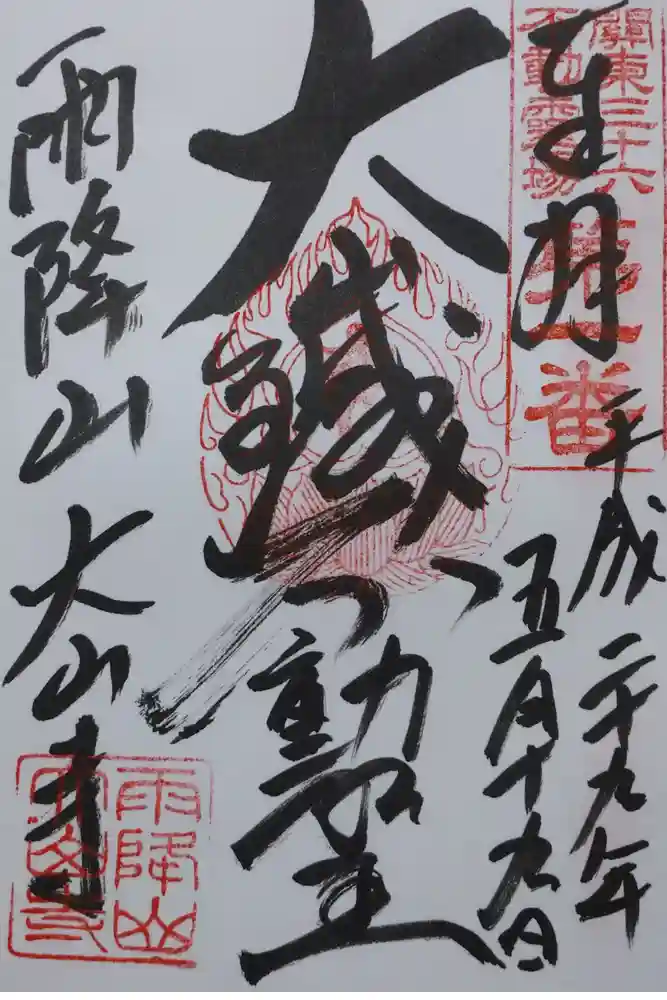 奉拝
平成二十九年
五月十九日
關東三十六
不動霊場
第一番
大鐵不動尊
雨降山大山寺
雨降山
大山寺